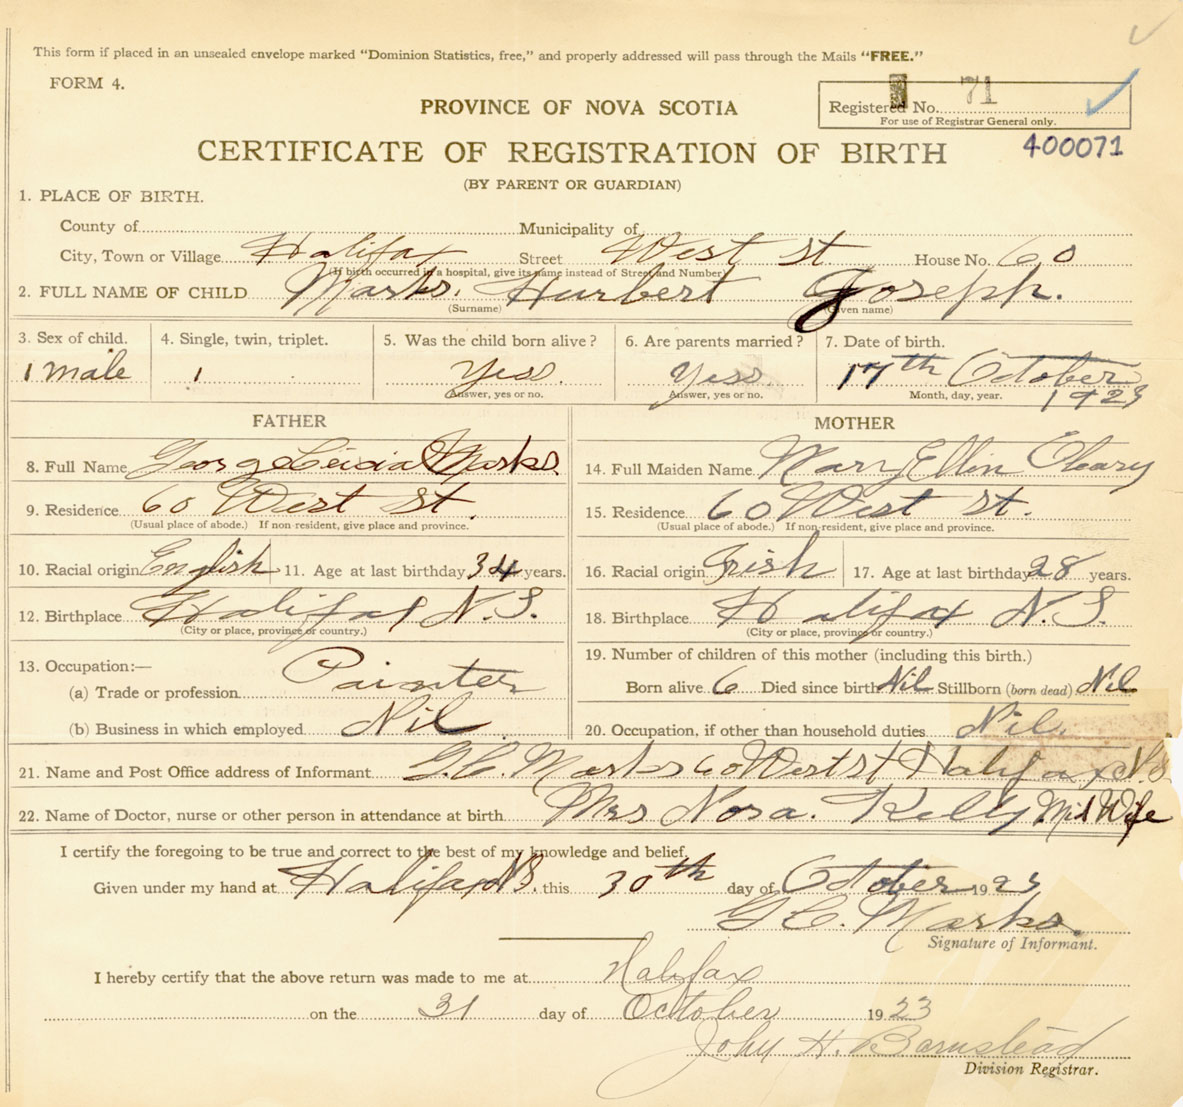 This form if placed in an unsealed envelope marked "Dominion Statistics, free," and properly addressed will pass through the Mails "FREE."
FORM 4.
Registered No. 71
For use of Registrar General only.
PROVINCE OF NOVA SCOTIA
400071
CERTIFICATE OF REGISTRATION OF BIRTH
(BY PARENT OR GUARDIAN)
1. PLACE OF BIRTH.
County of Municipality of
City, Town or Village Halifax Street West St House No. 60
(If birth occurred in a hospital, give its name instead of Street and Number)
2. FULL NAME OF CHILD Marks. Hurbert Joseph.
(Surname) (Given name)
3. Sex of child. 4. Single, twin, triplet. 5. Was the child born alive? 6. Are parents married? 7. Date of birth.
1 male 1 Yess. Yess. 17th October
Answer, yes or no. Answer, yes or no. Month, day, year. 1923
FATHER MOTHER
8. Full Name George Marks.
14. Full Maiden Name Mary Ellin Cleary
9. Residence 60 West St.
(Usual place of abode.) If non-resident, give place and province.
15. Residence 60 West St.
(Usual place of abode.) If non-resident, give place and province.
10. Racial origin English 11. Age at last birthday 34 years.
16. Racial origin Irish 17. Age at last birthday 28 years.
12. Birthplace Halifax N.S.
(City or place, province or country.)
18. Birthplace Halifax N.S.
(City or place, province or country.)
13. Occupation:—
(a) Trade or profession Painter
(b) Business in which employed Nil
19. Number of children of this mother (including this birth.)
Born alive 6 Died since birth Nil Stillborn (born dead) Nil
20. Occupation, if other than household duties Nil.
21. Name and Post Office address of Informant G.C. Marks 60 West St Halifax N.S
22. Name of Doctor, nurse or other person in attendance at birth Mrs Nora. Kelly Mid Wife
I certify the foregoing to be true and correct to the best of my knowledge and belief.
Given under my hand at Halifax N.S. this 30th day of October 1923
G C. Marks.
Signature of Informant.
I hereby certify that the above return was made to me at Halifax
on the 31 day of October 1923
John H. Barnstead
Division Registrar.